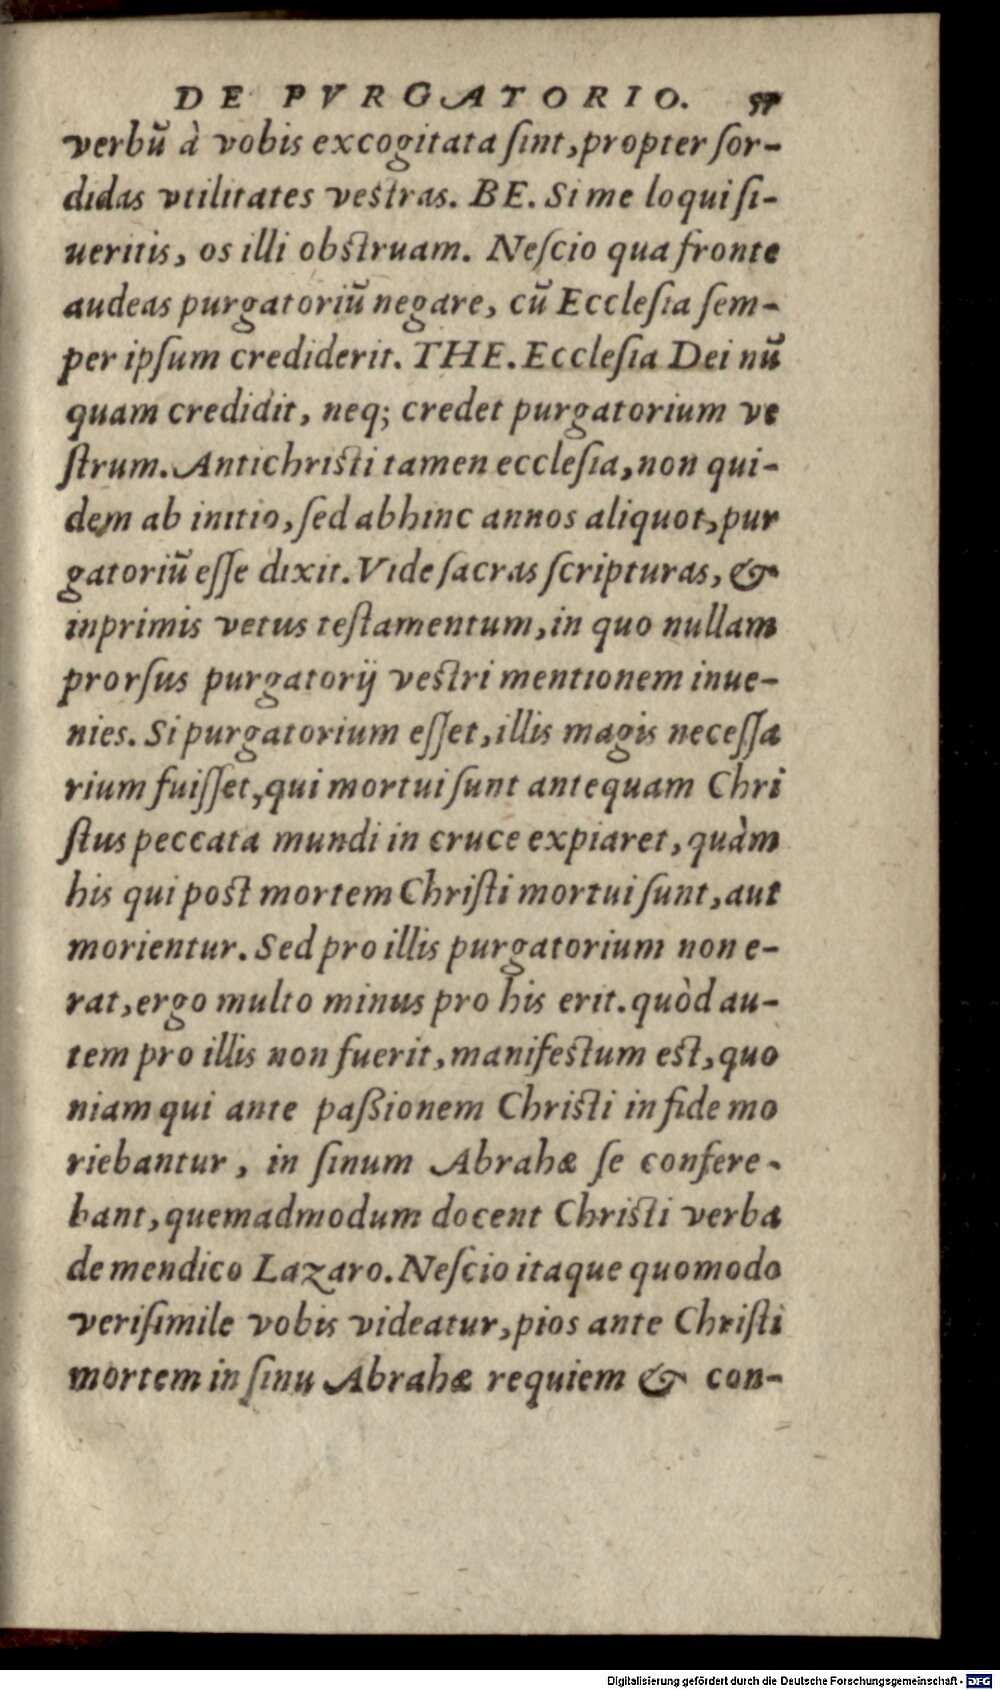 DE PVRGATORIO. 57
verbū à vobis excogitata ſint, propter ſor-
didas vtilitates vestras. BE. Si me loqui ſi-
ueritis, os illi obstruam. Neſcio qua fronte
audeas purgatoriū negare, cū Eccleſia ſem-
per ipſum crediderit. THE. Eccleſia Dei nū
quam credidit, neq; credet purgatorium ve
ſtrum. Antichriſti tamen eccleſia, non qui-
dem ab initio, ſed abhinc annos aliquot, pur
gatoriū eſſe dixit. Vide ſacras ſcripturas, &
inprimis vetus teſtamentum, in quo nullam
prorſus purgatorij vestri mentionem inue-
nies. Si purgatorium eſſet, illis magis neceſſa
rium fuiſſet, qui mortui ſunt antequam Chri
ſtus peccata mundi in cruce expiaret, quàm
his qui post mortem Chriſti mortui ſunt, aut
morientur. Sed pro illis purgatorium non e-
rat, ergo multo minus pro his erit. quòd au-
tem pro illis non fuerit, manifestum est, quo
niam qui ante paßionem Christi in fide mo
riebantur, in ſinum Abrahæ ſe confere-
bant, quemadmodum docent Christi verba
de mendico Lazaro. Neſcio itaque quomodo
veriſimile vobis videatur, pios ante Chriſti
mortem in ſinu Abrahæ requiem & con-
Digitalisierung gefördert durch die Deutsche Forschungsgemeinschaft - DFG